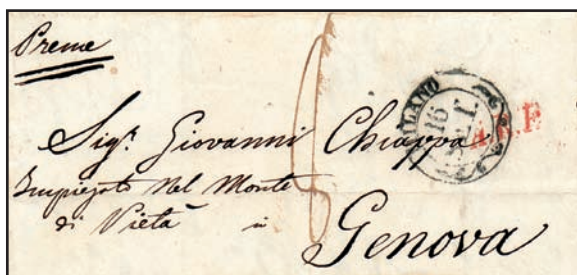 Preme
MILANO
16
SET.
A.R.F.
Sig.r Giovanni Chiappa
Impiegato nel Monte
di Pietà in
Genova